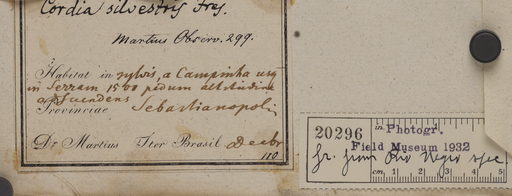 Cordia silvestris Fres.
Martius Observ. 299.
Habitat in sylvis, a Campinha usq
in Serram 1500 pedum altitudine
adscendens
Provinciae Sebastianopoli
Dr Martius Iter Brasil Decbr
20296
in. Photogr.
Field Museum 1932
cm 1 2 3 4 5